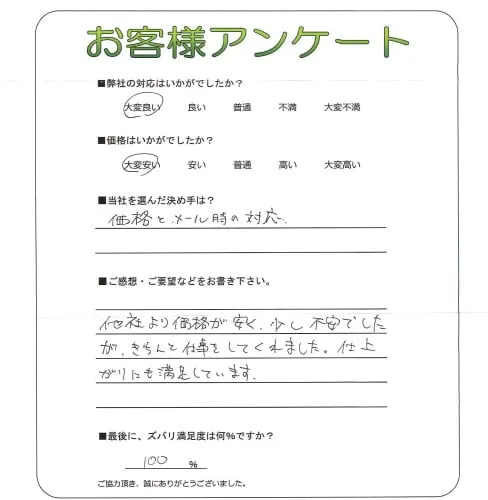 お客様アンケート
■弊社の対応はいかがでしたか？
大変良い 良い 普通 不満 大変不満
■価格はいかがでしたか？
大変安い 安い 普通 高い 大変高い
■当社を選んだ決め手は？
価格とメール時の対応.
■ご感想・ご要望などをお書き下さい。
他社より価格が安く、少し不安でした
が、きちんと仕事をしてくれました。仕上
がりにも満足しています.
■最後に、ズバリ満足度は何％ですか？
100 %
ご協力頂き、誠にありがとうございました。